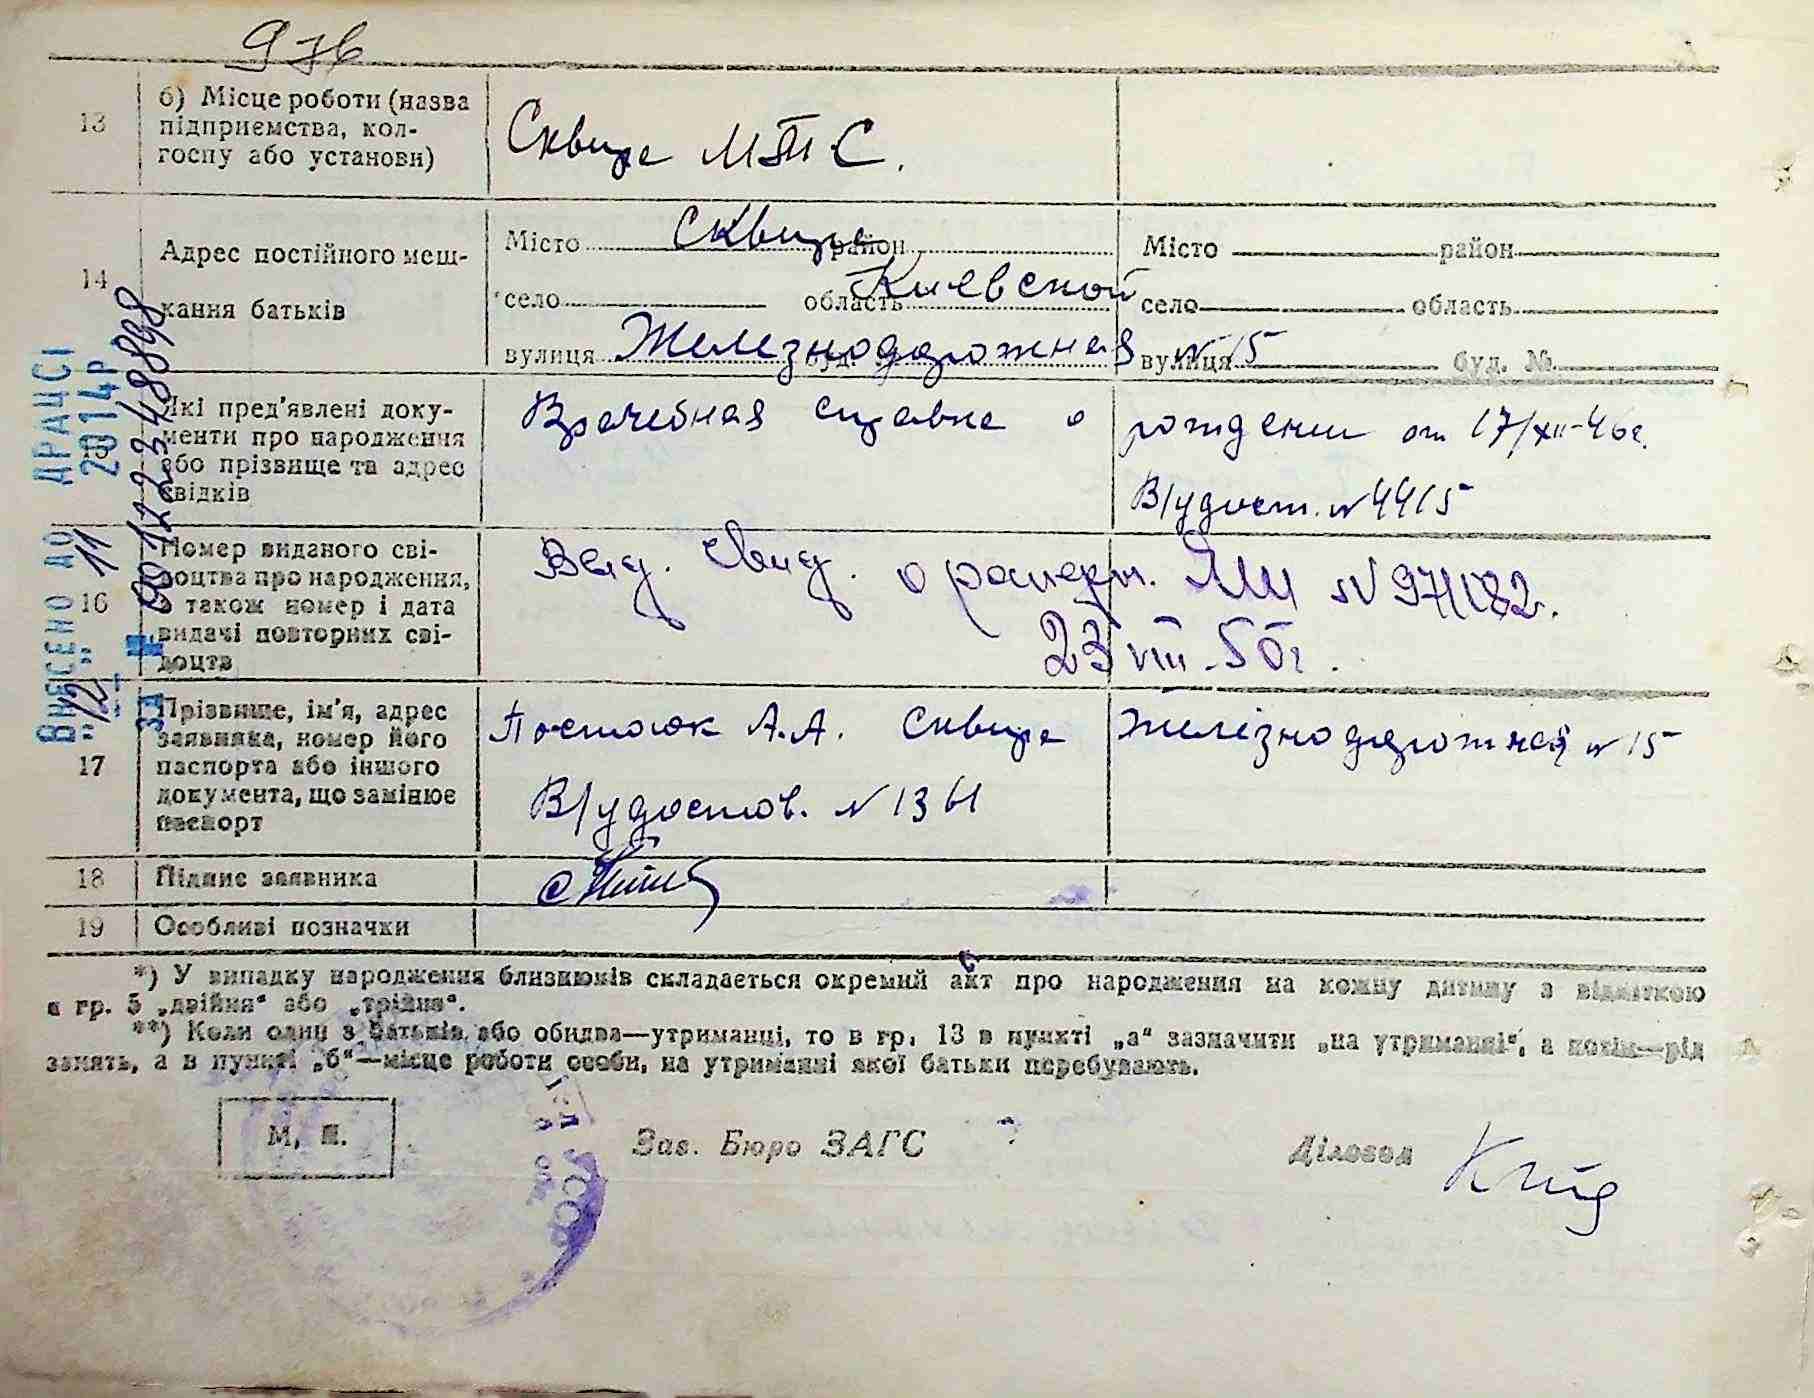 13
б) Місце роботи (назва
підприємства, кол-
госпу або установи)
Сквира МТС.
14
Адрес постійного меш-
кання батьків
Місто Сквира район
село область Киевской
вулиця Железнодорожная буд. N 15
Місто район
село область
вулиця буд. №
15
Які пред'явлені доку-
менти про народження
або прізвище та адрес
свідків
Врачебная справка о рождении от 17/XII-46г.
В/удост. N 4415
16
Номер виданого сві-
доцтва про народження,
а також номер і дата
видачі повторних сві-
доцтв
Выд. Свид. о рожден. N 971182.
23 VIII-50г.
17
Прізвище, ім'я, адрес
заявника, номер його
паспорта або іншого
документа, що замінює
паспорт
А.А. Сквира Железнодорожная N 15
В/удостов. N 1361
18
Підпис заявника
19
Особливі позначки
*) У випадку народження близнюків складається окремий акт про народження на кожну дитину з відміткою
в гр. 5 „двійня" або „трійня".
**) Коли один з батьків або обидва—утриманці, то в гр. 13 в пункті „а" зазначити „на утриманні", а потім—рід
занять, а в пункті „б"—місце роботи особи, на утриманні якої батьки перебувають.
М. П.
Зав. Бюро ЗАГС
Діловод
Внесено до ДРАЦСГ
"12" 11 2014р
за № 00172348898